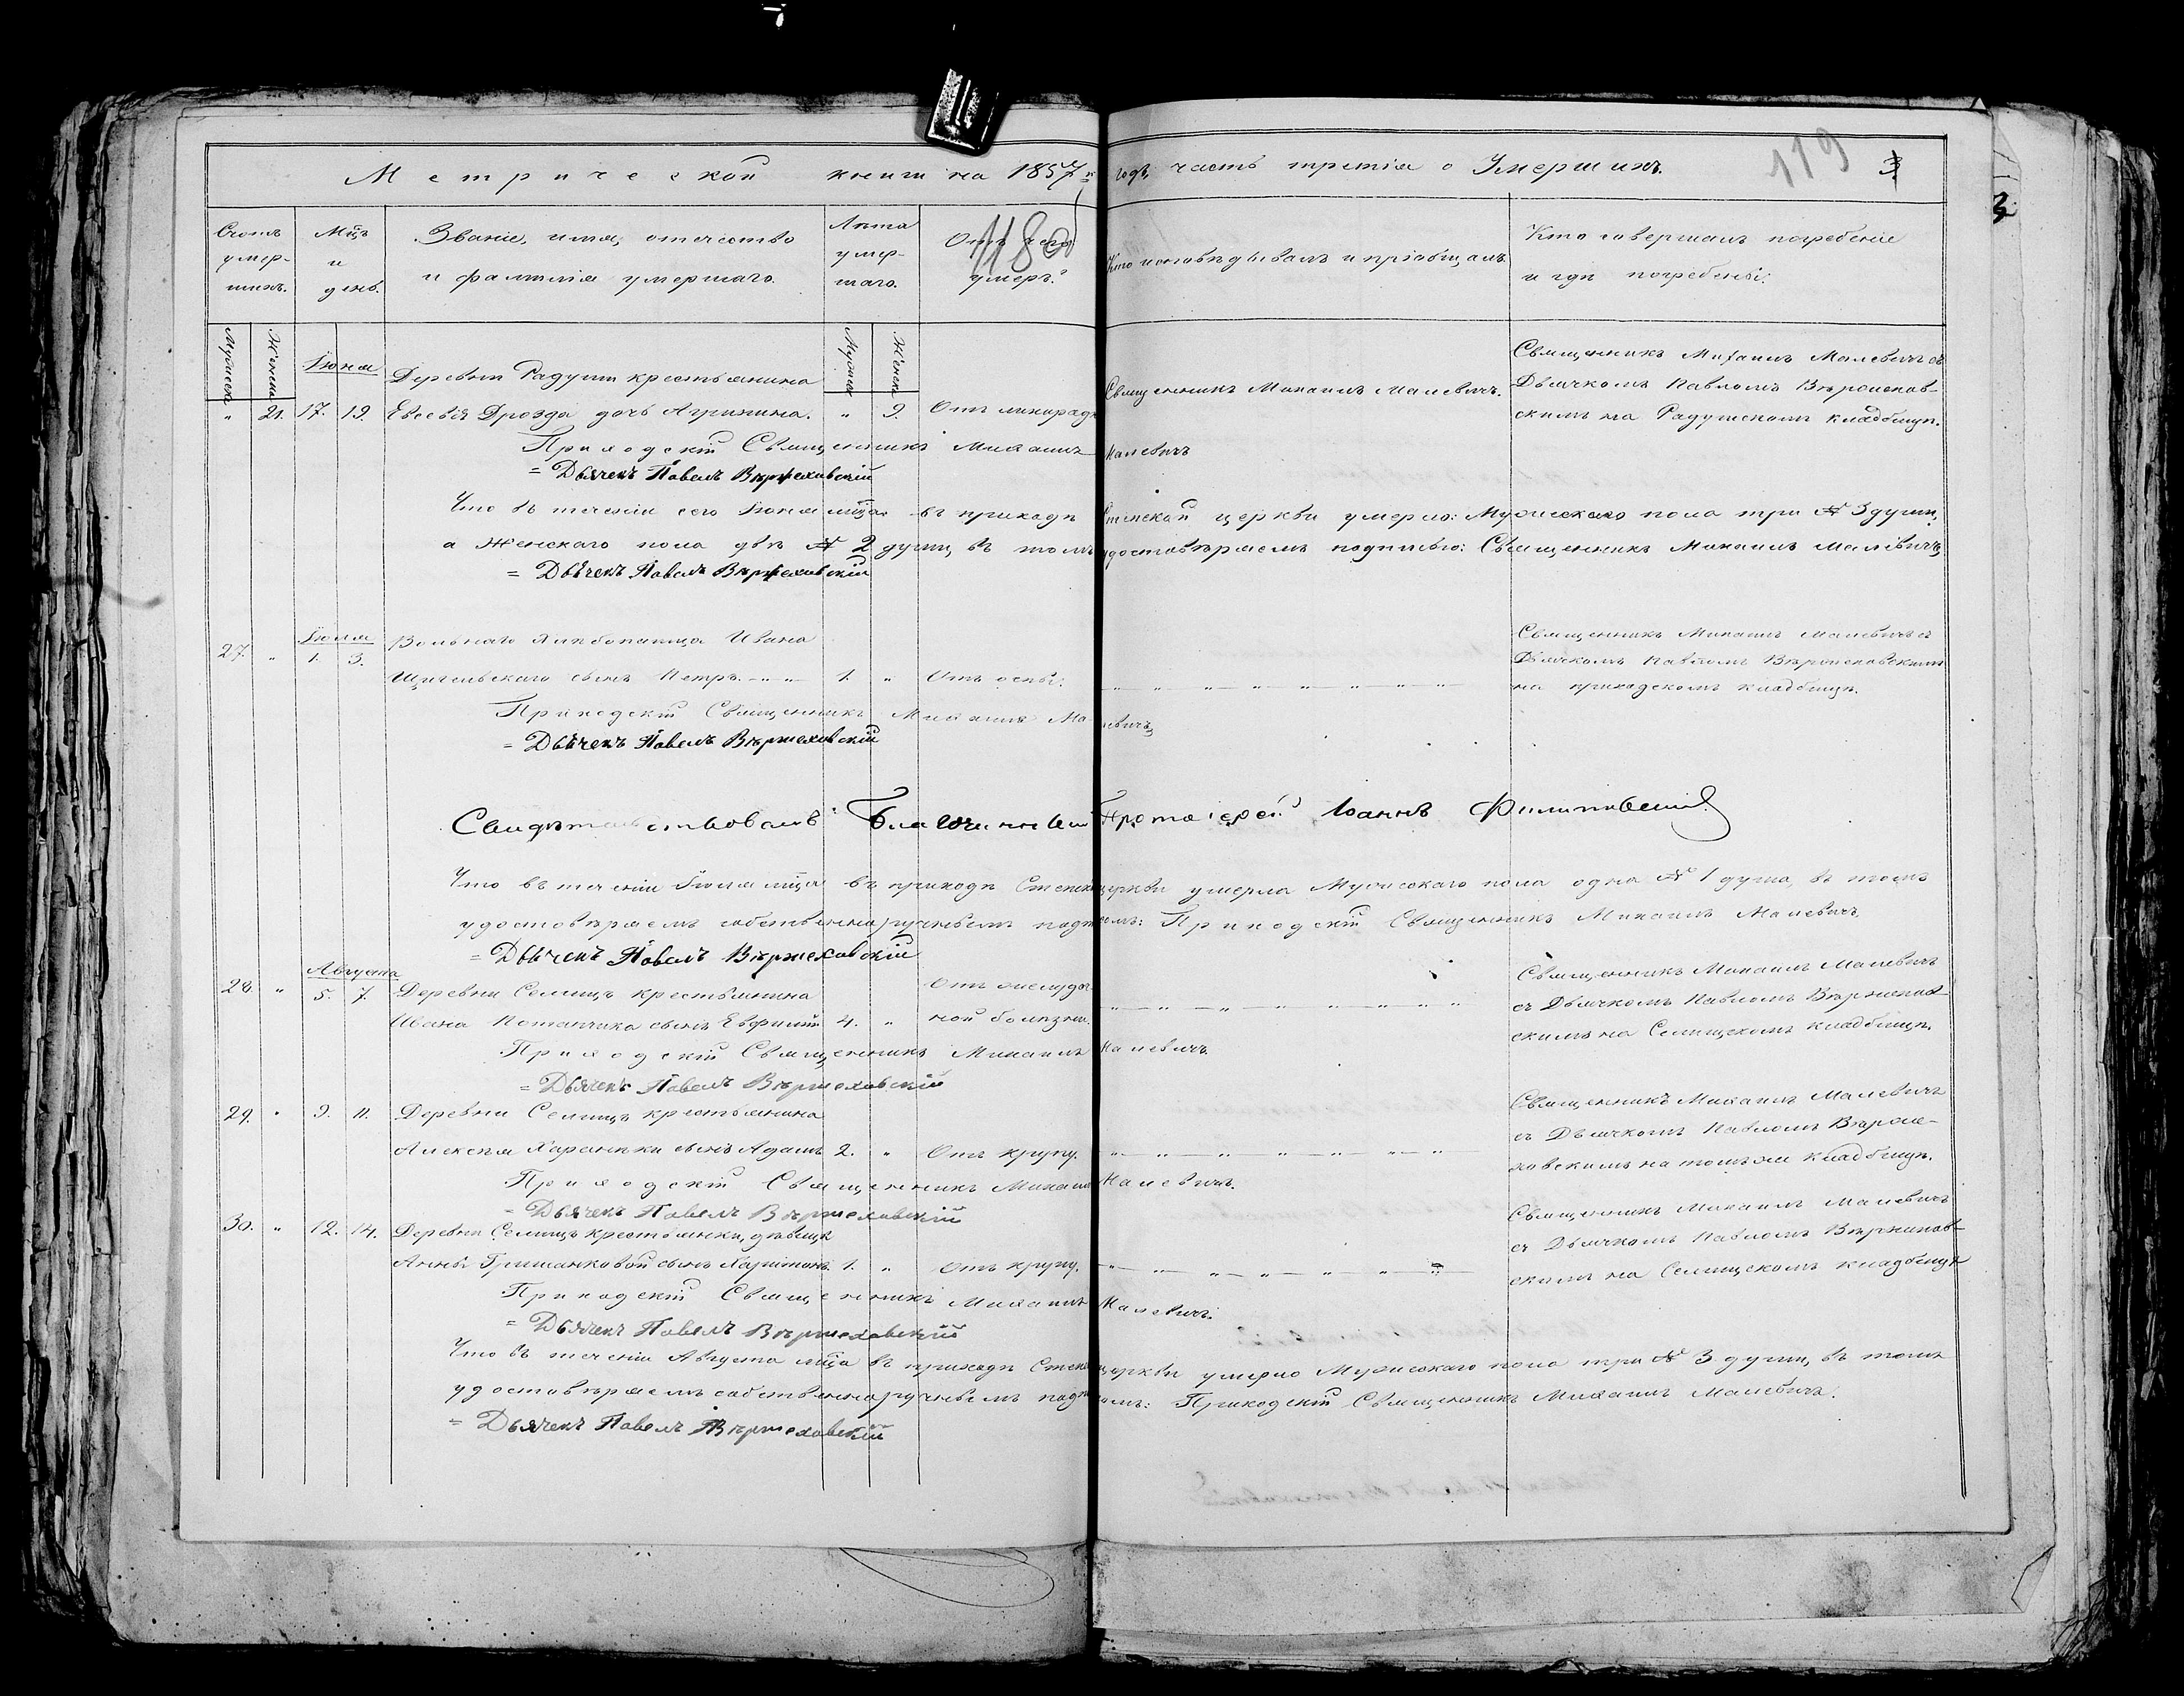 Метрической книги на 1857й годъ, часть третія о Умершихъ.
118об
119
3
3
Счотъ умер-
шихъ.
Мцъ
и
день.
Званіе, имя, отечество
и фамилія умершаго.
Лѣта
умер-
шаго.
Отъ чего
умеръ?
Кто исповѣдывалъ и пріобщалъ
Кто совершалъ погребеніе
и гдѣ погребены.
Мужеска
Женска
Мужеска
Женска
Іюня
Деревни Радути крестьянина
" 21. 17. 19. Евсевія Дрозда дочь Агрипина. " 9. Отъ лихорадк
Священникъ Михаилъ Малевичъ.
Священникъ Михаилъ Малевичъ съ
Дьячкомъ Павломъ Вѣржехов-
скимъ на Радутскомъ кладбищѣ.
Приходскій Священникъ Михаилъ Малевичъ
= Дьячекъ Павелъ Вѣржеховскій
Что въ теченіи сего Іюня мца въ приходѣ Степской церкви умерло: Мужескаго пола три № 3 души,
а Женскаго пола двѣ № 2 души, въ томъ удостовѣряемъ подписью: Священникъ Михаилъ Малевичъ,
= Дьячекъ Павелъ Вѣржеховскій
Іюля
27. " 1. 3. Вольнаго хлѣбопашца Ивана
Щигельскаго сынъ Петръ. 1. " Отъ оспы.
Священникъ Михаилъ Малевичъ съ
Дьячкомъ Павломъ Вѣржеховскимъ
на приходскомъ кладбищѣ.
Приходскій Священникъ Михаилъ Малевичъ,
= Дьячекъ Павелъ Вѣржеховскій
Свидѣтельствовалъ Благочинный Протоіерей Іоаннъ
Что въ теченіи Іюля мца въ приходѣ Степско церкви умерла Мужескаго пола одна № 1 душа, въ томъ
удостовѣряемъ собственноручнымъ подписомъ: Приходскій Священникъ Михаилъ Малевичъ,
= Дьячекъ Павелъ Вѣржеховскій
Августа
28. " 5. 7. Деревни Селищъ крестьянина
Ивана Потапчика сынъ Евфимій 4. "
Отъ желудоч-
ной болѣзни.
Священникъ Михаилъ Малевичъ
съ Дьячкомъ Павломъ Вѣржехов-
скимъ на Селищскомъ кладбищѣ.
Приходскій Священникъ Михаилъ Малевичъ.
= Дьячекъ Павелъ Вѣржеховскій
29. " 9. 11. Деревни Селищъ крестьянина
Алексѣя сынъ Адамъ 2. " Отъ крупу.
Священникъ Михаилъ Малевичъ
съ Дьячкомъ Павломъ Вѣрже-
ховскимъ на томъ же кладбищѣ.
Приходскій Священникъ Михаилъ Малевичъ.
= Дьячекъ Павелъ Вѣржеховскій
30. " 12. 14. Деревни Селищъ крестьянки, дѣвицы
Анны Гришанковой сынъ Харитонъ. 1. " Отъ крупу.
Священникъ Михаилъ Малевичъ
съ Дьячкомъ Павломъ Вѣржехов-
скимъ на Селищскомъ кладбищѣ
Приходскій Священникъ Михаилъ Малевичъ.
= Дьячекъ Павелъ Вѣржеховскій
Что въ теченіи Августа мца въ приходѣ Степско церкви умерло Мужескаго пола три № 3 души, въ томъ
удостовѣряемъ собственноручнымъ подписомъ: Приходскій Священникъ Михаилъ Малевичъ.
= Дьячекъ Павелъ Вѣржеховскій